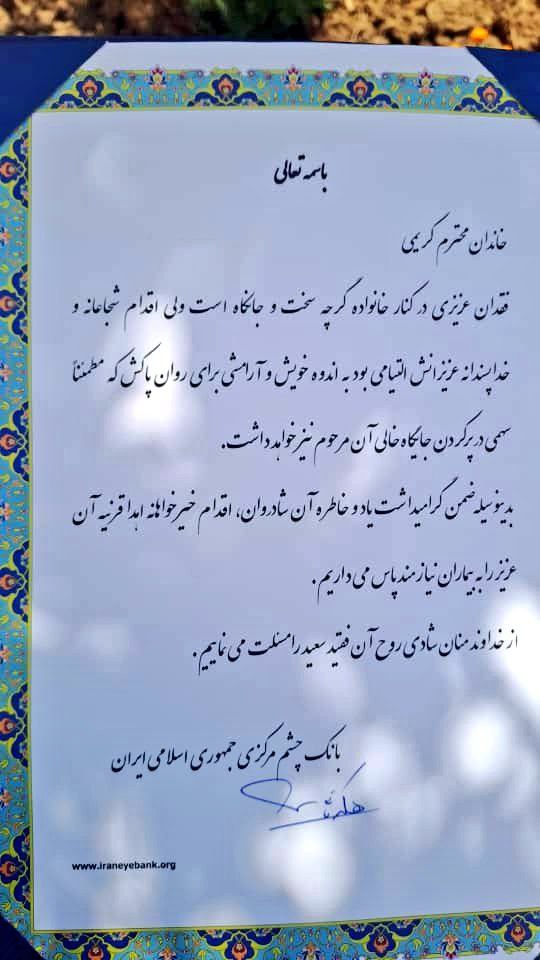 باسمه تعالی
خاندان محترم کریمی
فقدان عزیزی در کنار خانواده گرچه سخت و جانکاه است ولی اقدام شجاعانه و
خداپسندانه عزیزانش التیامی بود به اندوه خویش و آرامشی برای روان پاکش که مطمئناً
سهمی در پر کردن جایگاه خالی آن مرحوم نیز خواهد داشت.
بدینوسیله ضمن گرامیداشت یاد و خاطره آن شادروان، اقدام خیرخواهانه اهدا قرنیه آن
عزیز را به بیماران نیازمند پاس می داریم.
از خداوند منان شادی روح آن فقید سعید را مسئلت می نماییم.
بانک چشم مرکزی جمهوری اسلامی ایران
www.iraneyebank.org